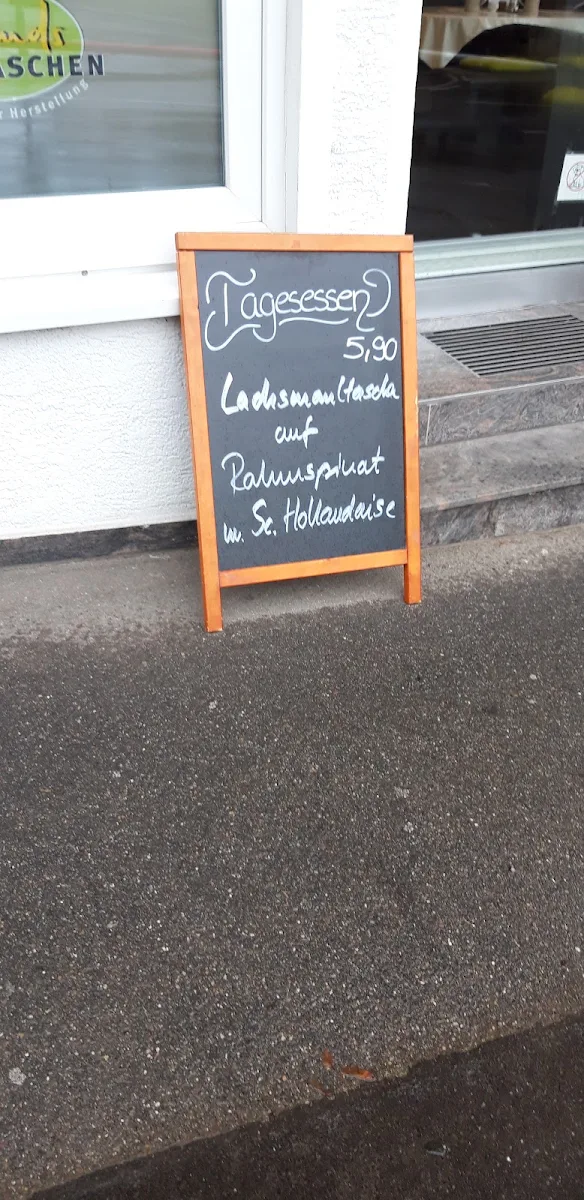 ASCHEN
r Herstellung
Tagesessen
5,90
Lachsmaultascha
auf
Rahmspinat
m. Sc. Hollandaise